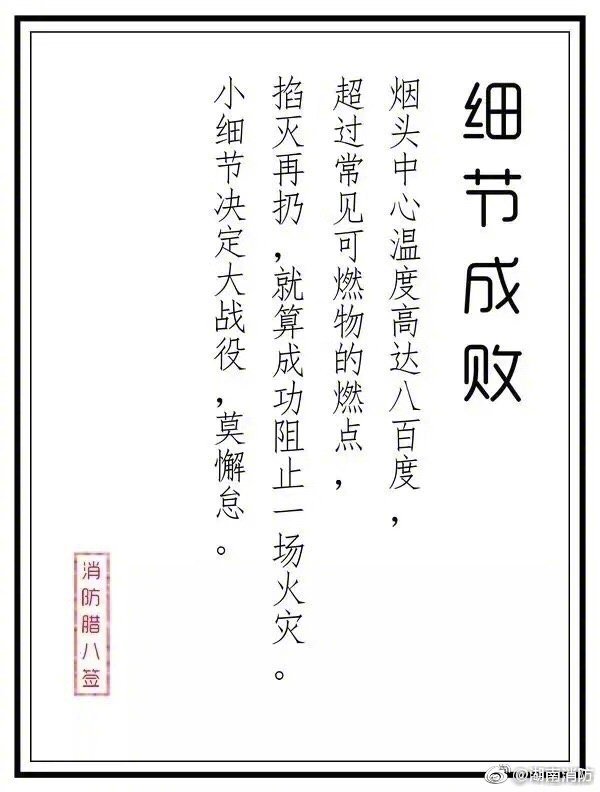 细节成败
烟头中心温度高达八百度，
超过常见可燃物的燃点，
掐灭再扔，就算成功阻止一场火灾。
小细节决定大战役，莫懈怠。
消防腊八签
@湖南消防